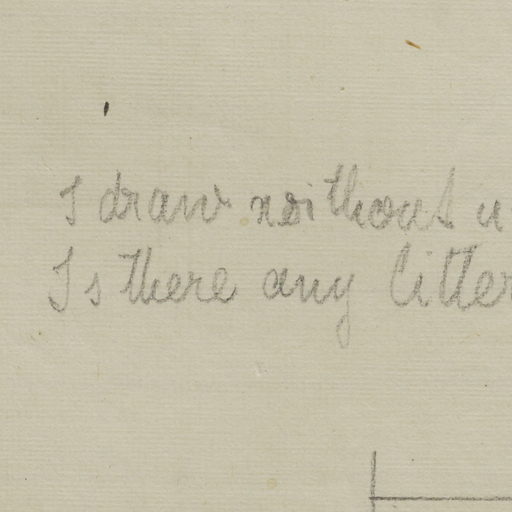 I draw without u
Is there any litter